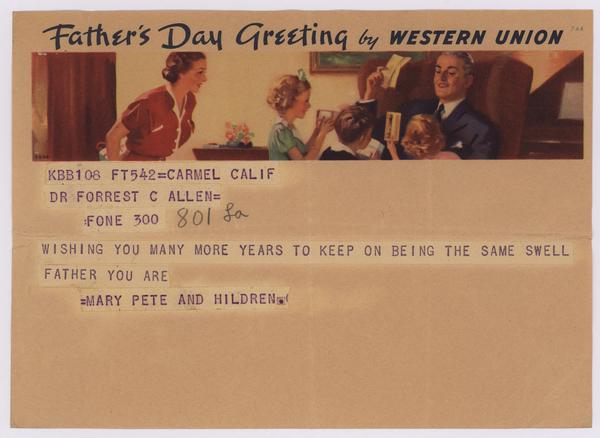 Father's Day Greeting by WESTERN UNION
KBB108 FT542=CARMEL CALIF
DR FORREST C ALLEN=
:FONE 300 801 La
WISHING YOU MANY MORE YEARS TO KEEP ON BEING THE SAME SWELL
FATHER YOU ARE
=MARY PETE AND HILDREN.